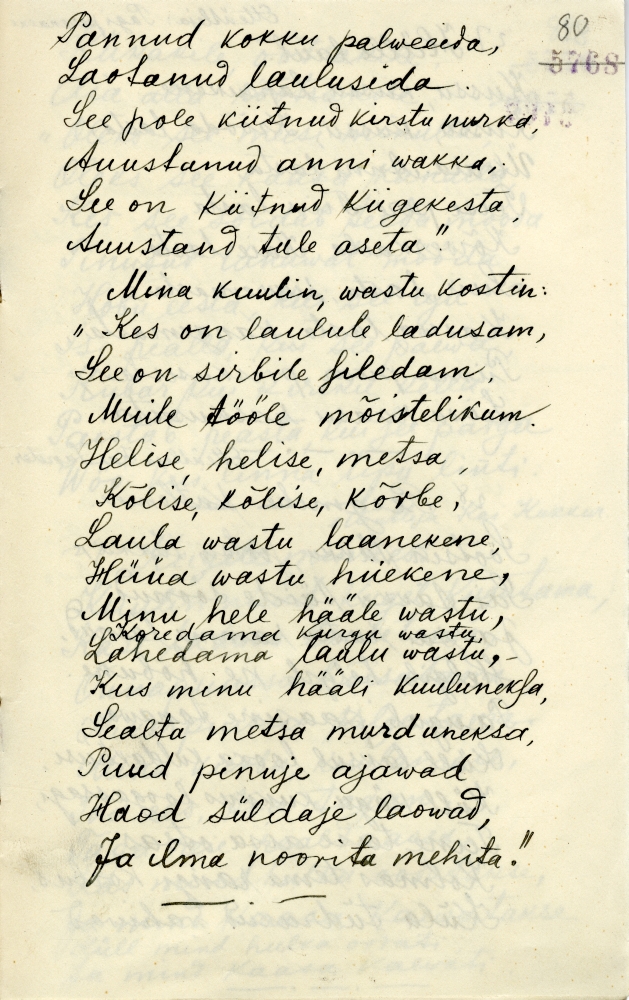 80
5768
Pannud kokku palweeida,
Laotanud laulusida.
See pole kiitnud kirstu nurka,
Auustanud anni wakka,
See on kiitnud kiigekesta,
Auustand tule aseta".
Mina kuulin, wastu kostin:
„Kes on laulule ladusam,
See on sirbile siledam,
Muile tööle mõistelikum.
Helise, helise, metsa,
Kõlise, kõlise, kõrbe,
Laula wastu laanekene,
Hüüa wastu hiiekene,
Minu hele hääle wastu,
Koredama kurgu wastu,
Lahedama laulu wastu, –
Kus minu hääli kuuluneksa,
Sealta metsa murduneksa,
Puud pinuje ajawad
Haod süldaje laowad,
Ja ilma noorita mehita."